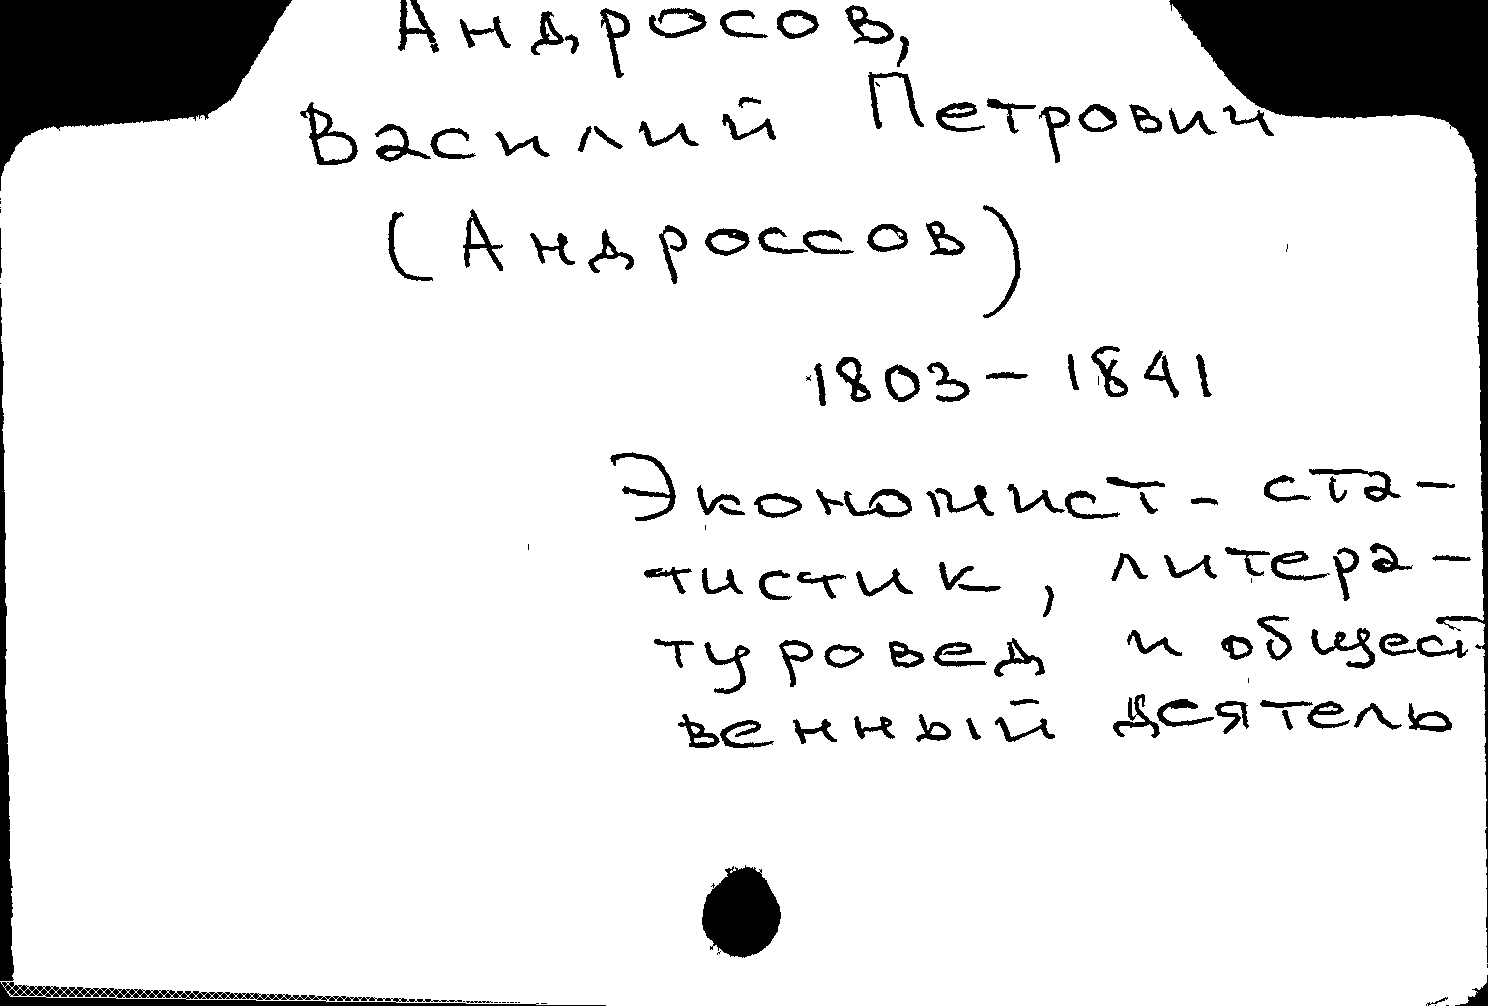 Андросов,
Василий Петрович
(Андроссов)
1803-1841
Экономист-ста-
тистик, литера-
туровед и общест-
венный деятель